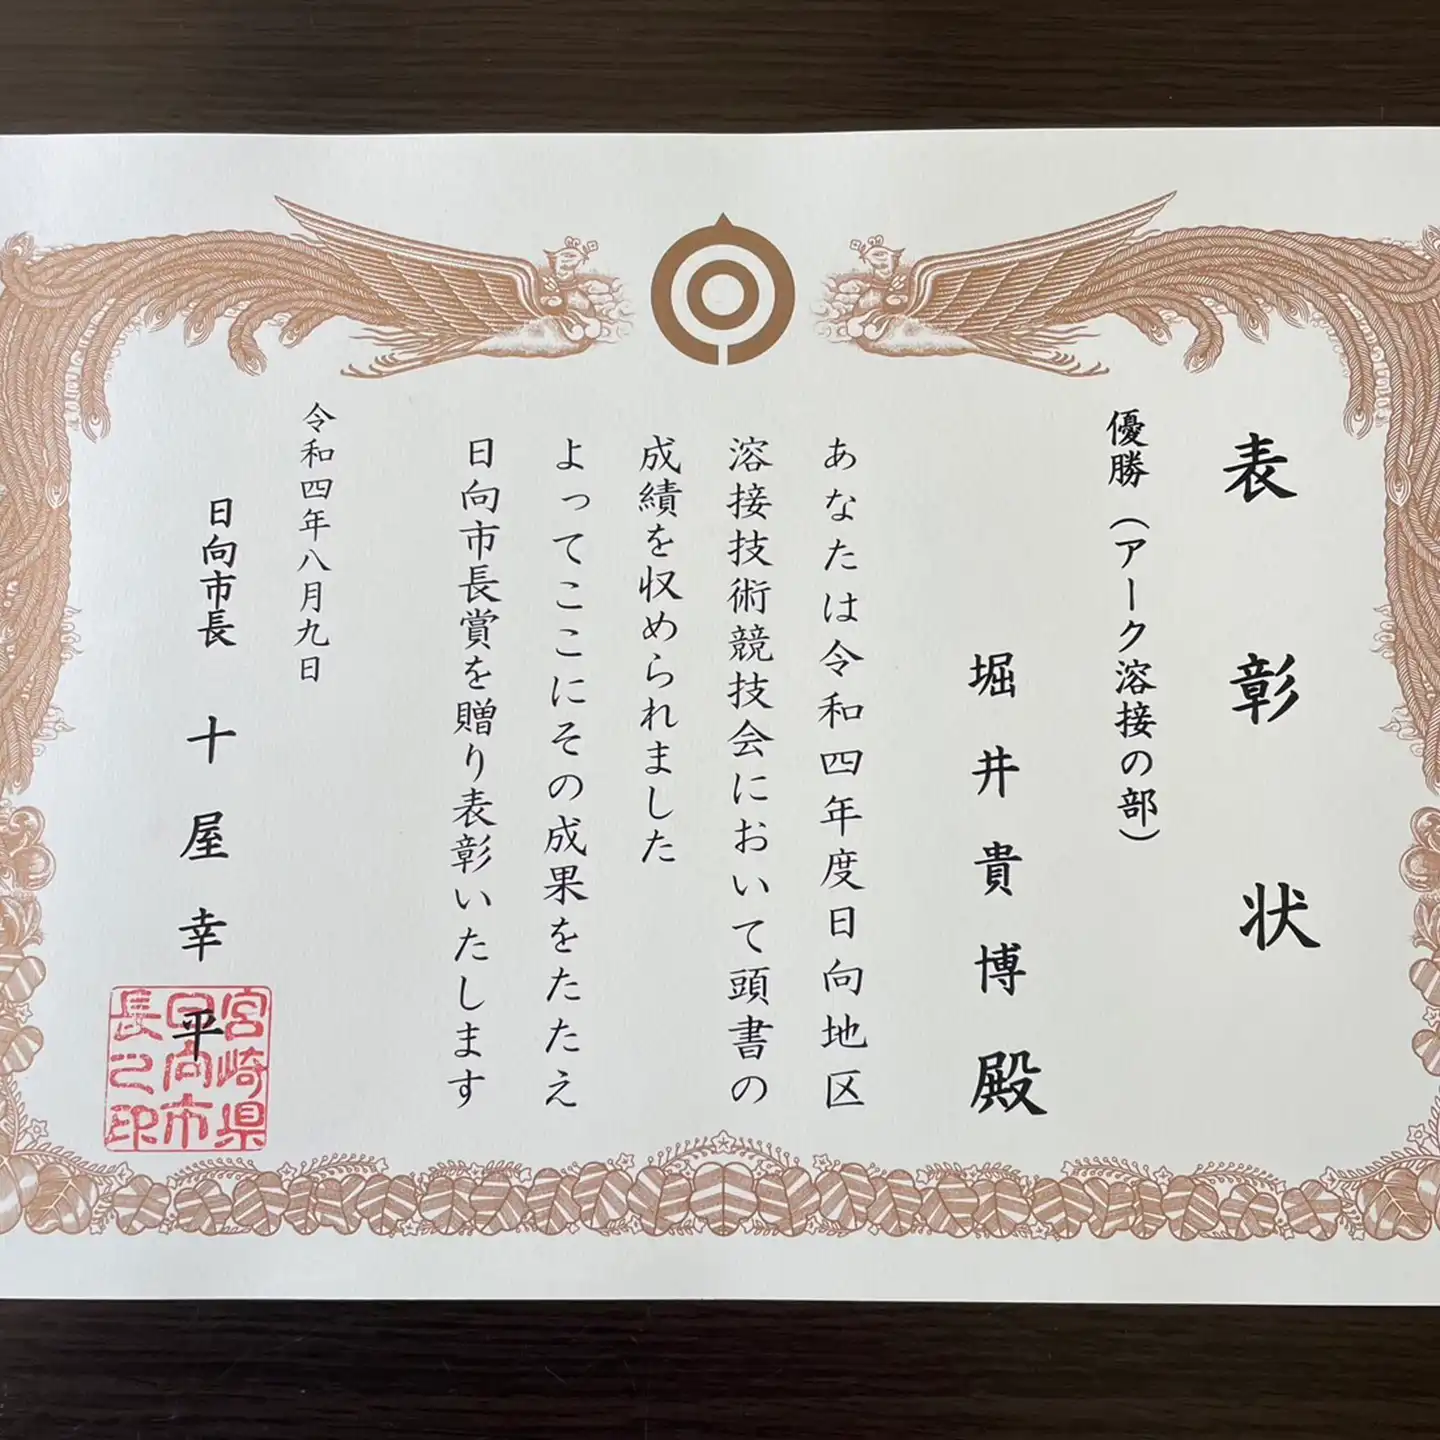 表彰状
優勝（アーク溶接の部）
堀井貴博殿
あなたは令和四年度日向地区
溶接技術競技会において頭書の
成績を収められました
よってここにその成果をたたえ
日向市長賞を贈り表彰いたします
令和四年八月九日
日向市長 十屋幸平
宮崎県
日向市
長之印